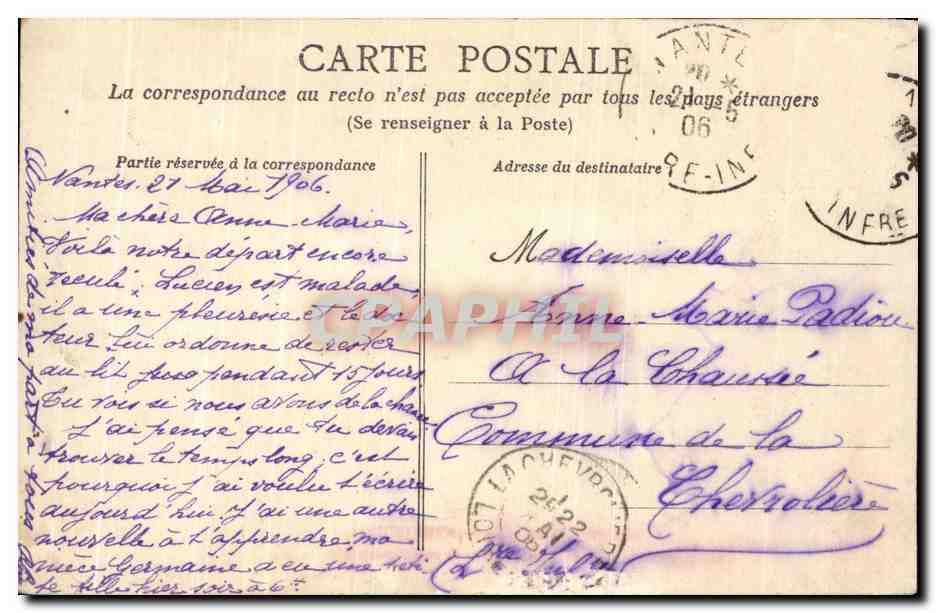 CARTE POSTALE
La correspondance au recto n'est pas acceptée par tous les pays étrangers
(Se renseigner à la Poste)
Partie réservée à la correspondance
Nantes. 21 Mai 1906.
Ma chère Anne Marie,
Voilà notre départ encore
reculé, Lucien est malade,
il a une pleurésie et le doc
teur lui ordonne de rester
au lit pendant 15 jours
Tu vois si nous avons de la chance
J'ai pensé que tu devais
trouver le temps long, c'est
pourquoi j'ai voulu t'écrire
aujourd'hui J'ai une autre
nouvelle à t'apprendre ma
nièce Germaine a eu une peti
te fille hier soir à 6h
Amitiés de ma part à tous
Adresse du destinataire
Mademoiselle
Anne-Marie Padiou
A la Chaussée
Commune de la
Chevrolière
Lre Infre
NANTE
20 *
21 -5
06
RE-INF
20 *
5
INFRE
LA CHEVROLIER
22
MAI
06
LOI
CPAPHIL